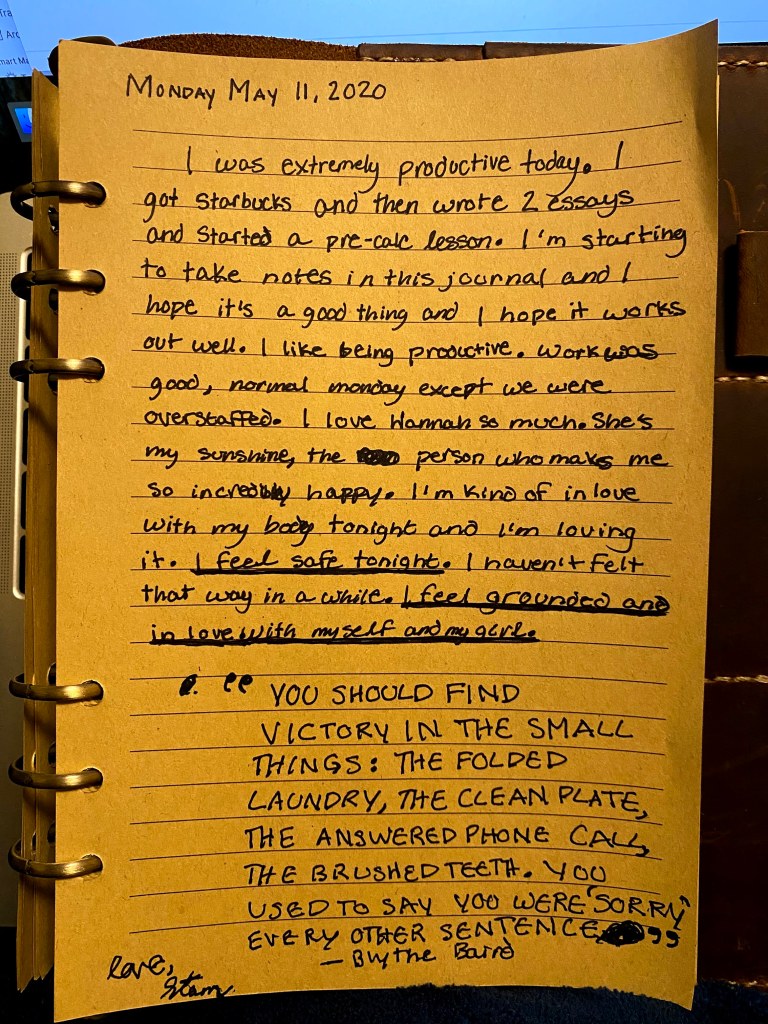 Tra
Arc
mart Ma
MONDAY MAY 11, 2020
I was extremely productive today. I
got Starbucks and then wrote 2 essays
and started a pre-calc lesson. I'm starting
to take notes in this journal and I
hope it's a good thing and I hope it works
out well. I like being productive. Work was
good, normal monday except we were
overstaffed. I love Hannah so much. She's
my sunshine, the person who makes me
so incredibly happy. I'm kind of in love
with my body tonight and I'm loving
it. I feel safe tonight. I haven't felt
that way in a while. I feel grounded and
in love with myself and my girl.
“YOU SHOULD FIND
VICTORY IN THE SMALL
THINGS: THE FOLDED
LAUNDRY, THE CLEAN PLATE,
THE ANSWERED PHONE CALL,
THE BRUSHED TEETH. YOU
USED TO SAY YOU WERE "SORRY"
EVERY OTHER SENTENCE”
— Blythe Baird
love,